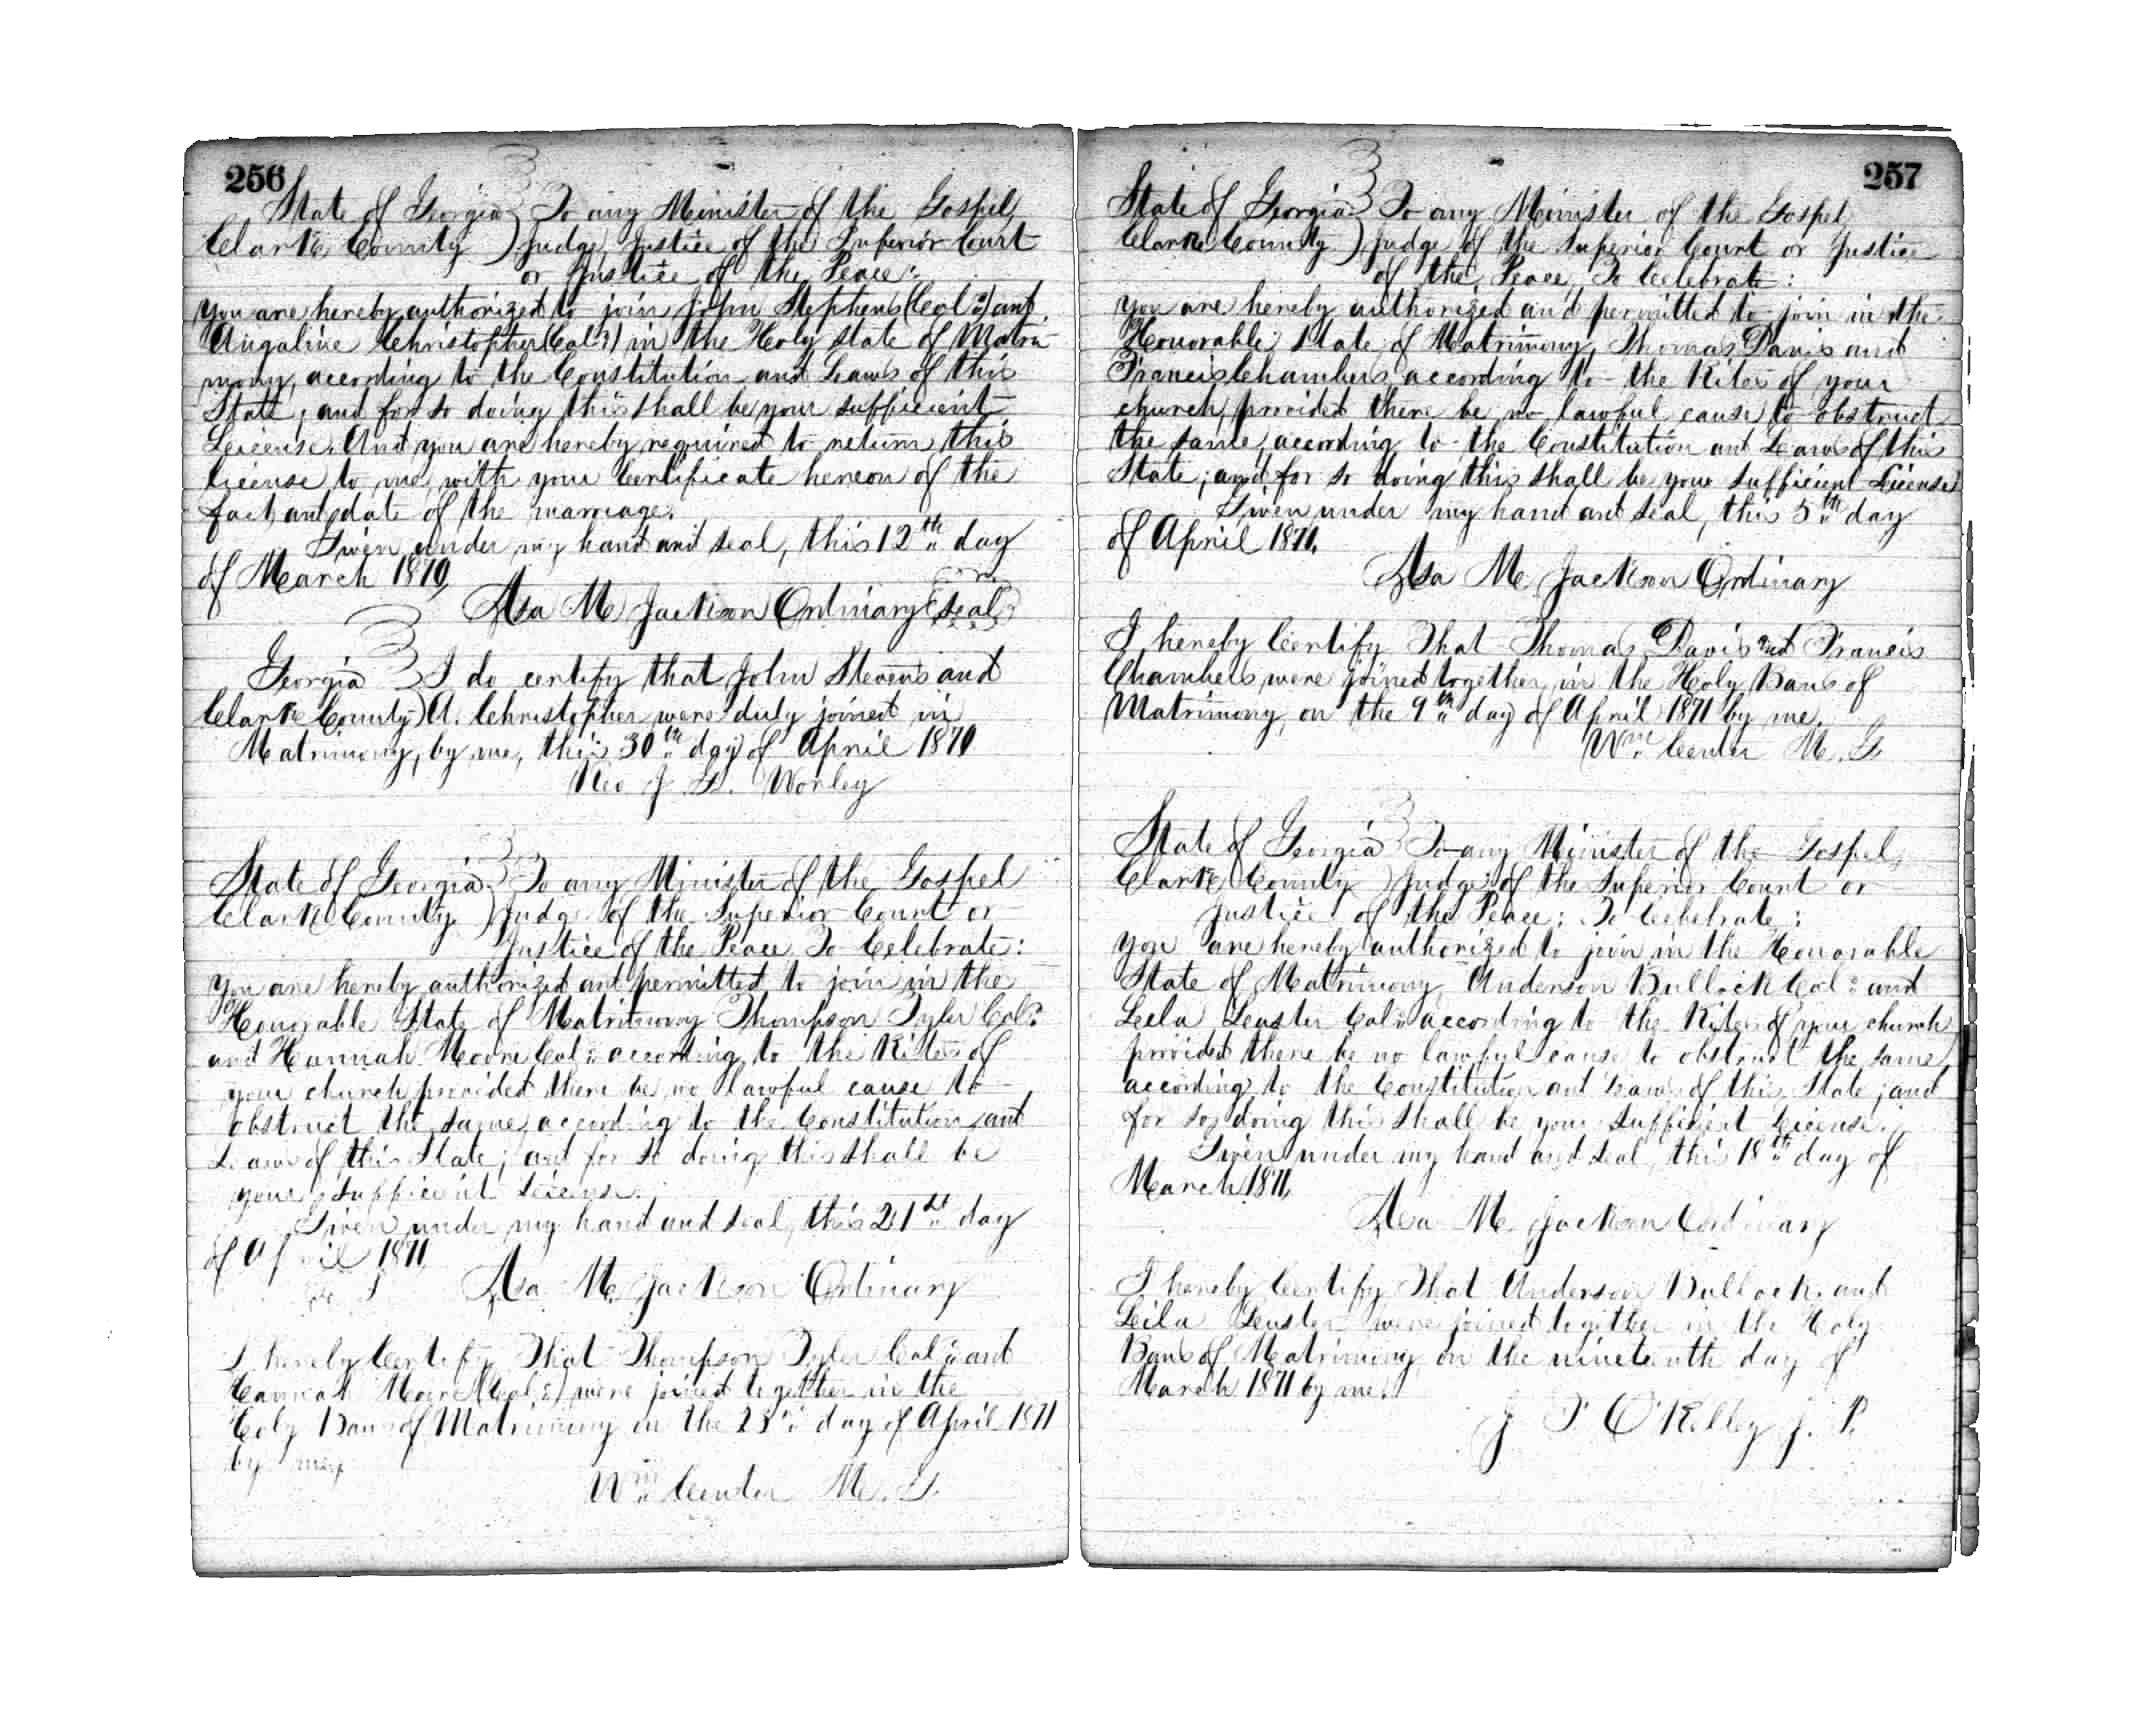 256
State of Georgia } To any Minister of the Gospel,
Clarke County } Judge, Justice of the Superior Court
or Justice of the Peace:
You are hereby authorized to join John Stephens (Col:d) and
Angaline Christopher (Col:d) in the Holy state of Matri-
mony, according to the Constitution and Laws of this
State; and for so doing this shall be your sufficient
License. And you are hereby required to return this
license to me, with your Certificate hereon of the
fact and date of the marriage.
Given under my hand and seal, this 12th day
of March 1870,
Asa M. Jackson Ordinary (Seal)
Georgia } I do certify that John Stevens and
Clarke County } A. Christopher were duly joined in
Matrimony, by me, this 30th day of April 1870
Rev J. G. Worley
State of Georgia } To any Minister of the Gospel
Clarke County } Judge of the Superior Court or
Justice of the Peace To Celebrate:
You are hereby authorized and permitted to join in the
Honorable State of Matrimony Thompson Tyler Col:d
and Hannah Moore Col:d according to the Rites of
your church, provided there be no lawful cause to
obstruct the same, according to the Constitution and
Laws of this State; and for so doing this shall be
your sufficient License.
Given under my hand and seal, this 21st day
of April 1871
Asa M. Jackson Ordinary
I hereby Certify That Thompson Tyler Col:d and
Hannah Moore (Col:d) were joined together in the
Holy Bans of Matrimony on the 23rd day of April 1871
by me,
Wm Center M. G.
257
State of Georgia } To any Minister of the Gospel,
Clarke County } Judge of the Superior Court or Justice
of the Peace, To Celebrate:
You are hereby authorized and permitted to join in the
Honorable State of Matrimony, Thomas Davis and
Francis Chambers, according to the Rites of your
church, provided there be no lawful cause to obstruct
the same, according to the Constitution and Laws of this
State; and for so doing this shall be your sufficient License
Given under my hand and seal, this 5th day
of April 1871.
Asa M. Jackson Ordinary
I hereby Certify That Thomas Davis and Francis
Chambers were joined together, in the Holy Bans of
Matrimony, on the 9th day of April 1871 by me.
Wm Center M. G.
State of Georgia } To any Minister of the Gospel,
Clarke County } Judge of the Superior Court or
Justice of the Peace: To Celebrate:
You are hereby authorized to join in the Honorable
State of Matrimony, Anderson Bullock Col:d and
Leela Lester Col:d according to the Rites of your church
provided there be no lawful cause to obstruct the same,
according to the Constitution and Laws of this State; and
for so doing this shall be your sufficient License.
Given under my hand and seal, this 18th day of
March 1871,
Asa M. Jackson Ordinary
I hereby Certify That Anderson Bullock and
Leila were joined together in the Holy
Bans of Matrimony on the nineteenth day of
March 1871 by me.
J T O'Kelley J. P.